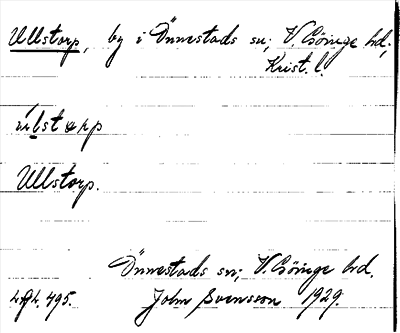 Ullstorp, by i Önnestads sn; V. Göinge hd;
Krist. l.
Ullstorp.
Önnestads sn; V. Göinge hd.
John Svensson 1929.